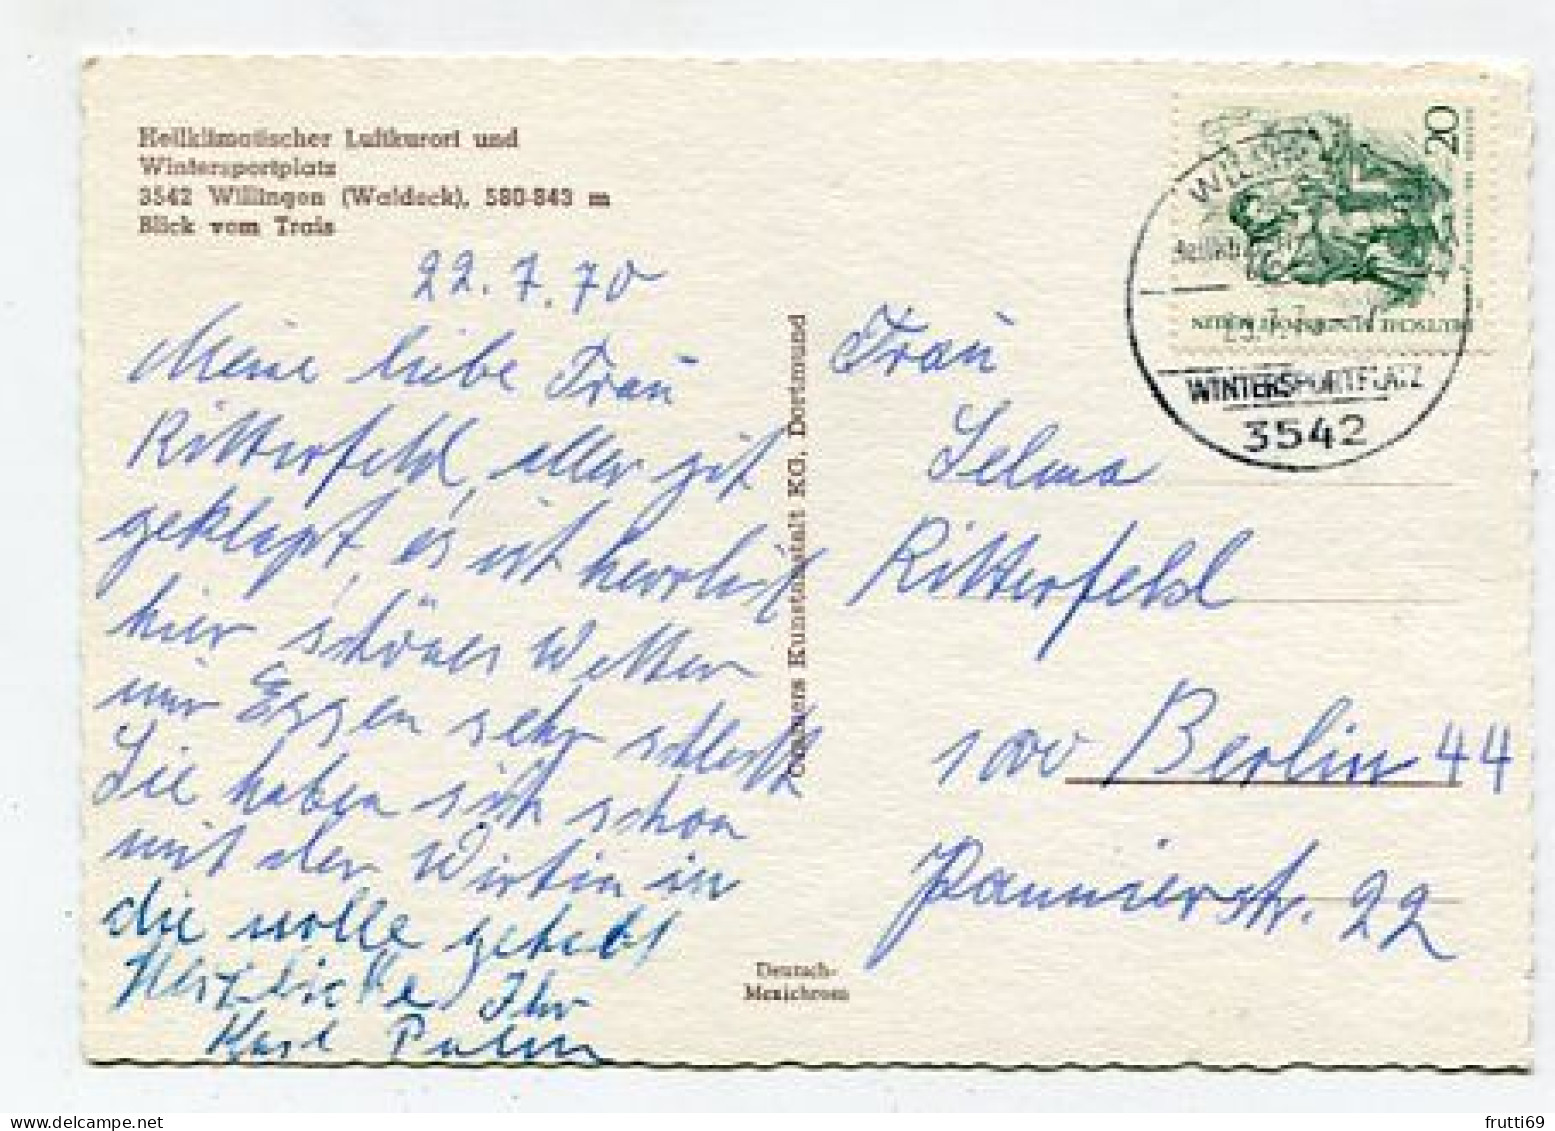 Heilklimatischer Luftkurort und
Wintersportplatz
3542 Willingen (Waldeck), 580-843 m
Blick vom Trais
22.7.70
Meine liebe Frau
Ritterfeld, alles gut
geklapt, es ist herrlich
hier schönes Wetter
nur Eszen sehr schlecht
Sie haben sich schon
mit der Wirtin in
die wolle gehabt
Herzliche Ihr
Karl
Kunstanstalt KG, Dortmund
Deutsch-
Mexichrom
20
DEUTSCHE BUNDESPOST BERLIN
WINTERSPORTPLATZ
3542
Frau
Selma
Ritterfeld
1000 Berlin 44
Pannierstr. 22
frutti69